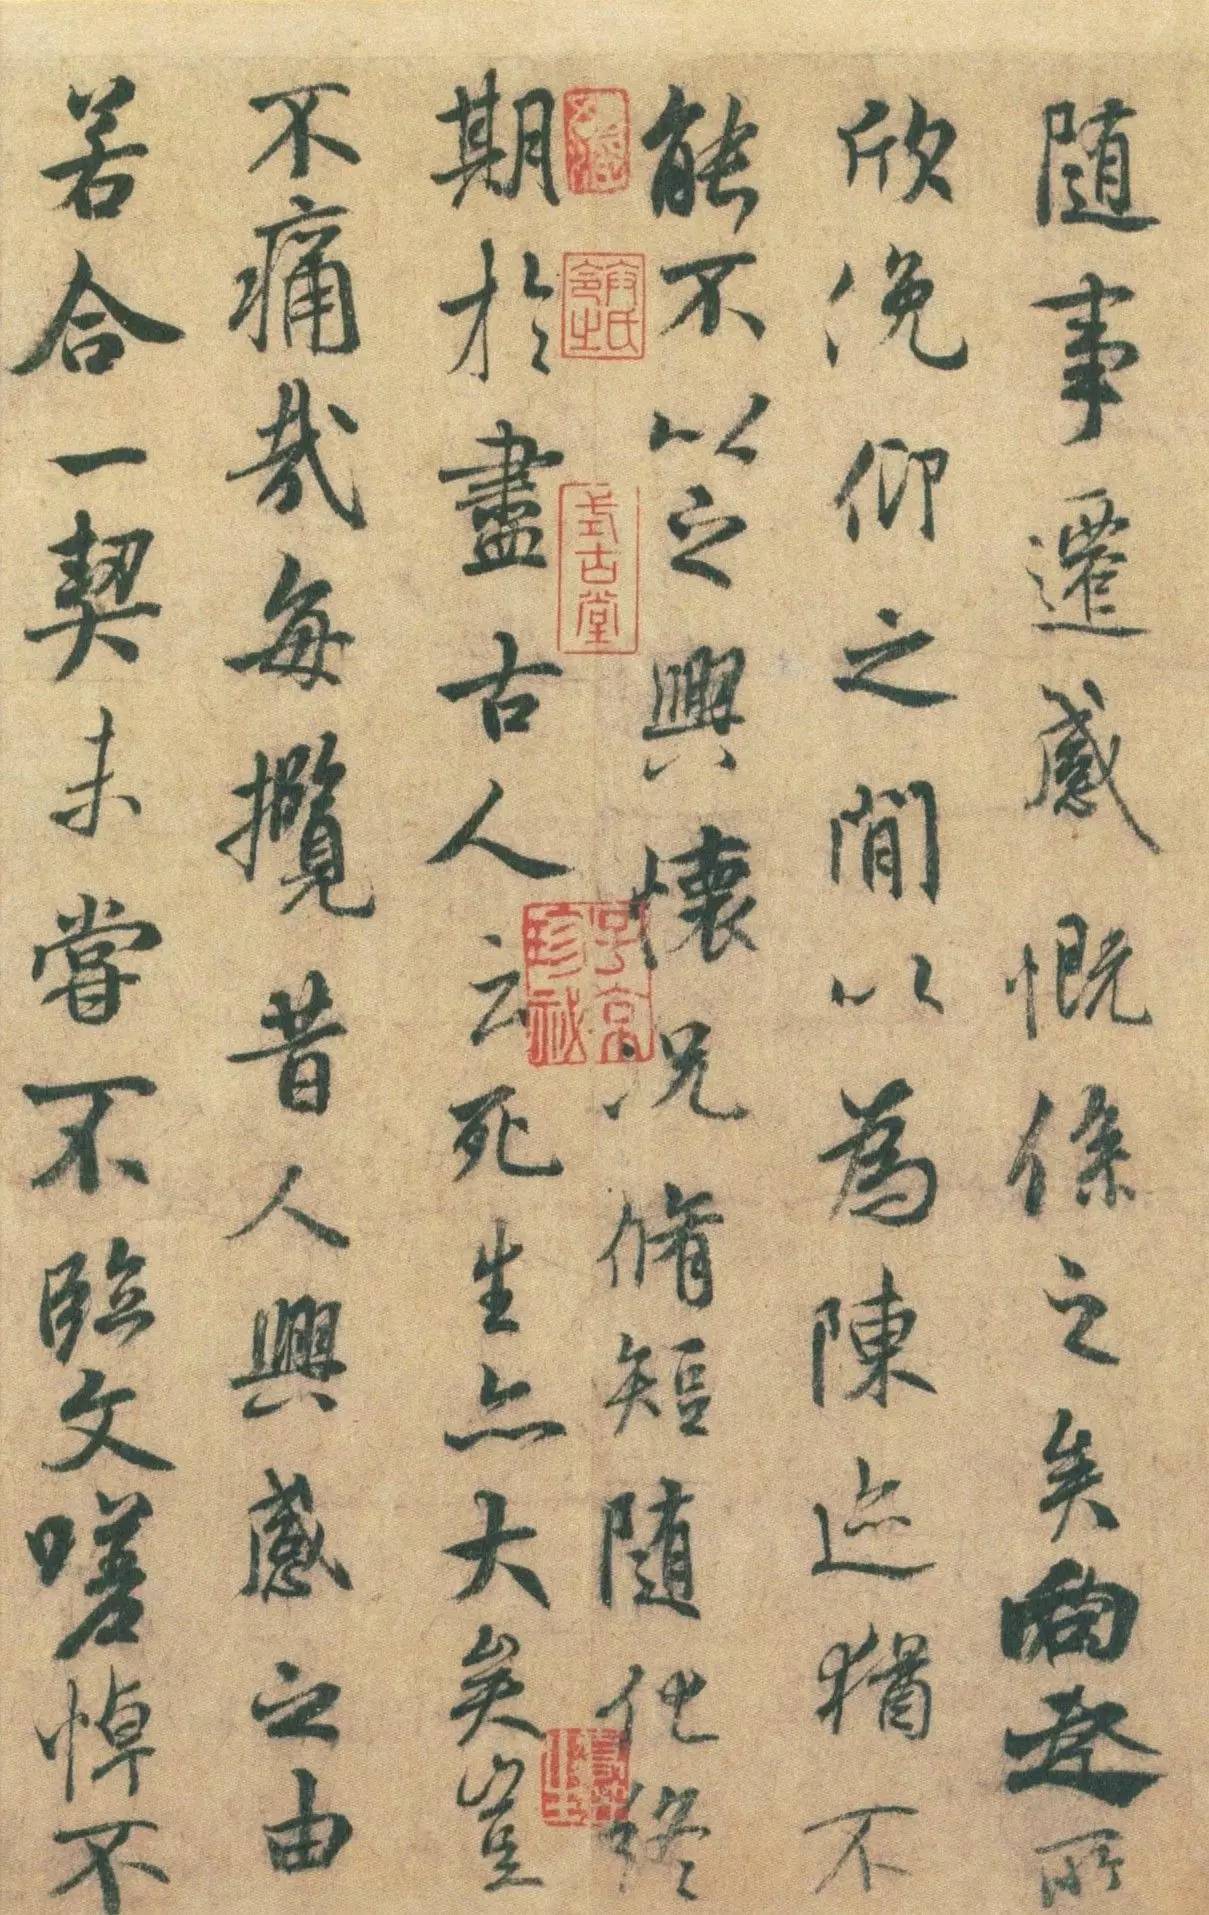 随事遷感慨係之矣向之所
欣俛仰之閒以為陳迹猶不
能不以之興懷況脩短随化終
期於盡古人云死生亦大矣豈
不痛哉每攬昔人興感之由
若合一契未嘗不臨文嗟悼不
式古堂
子京珍秘